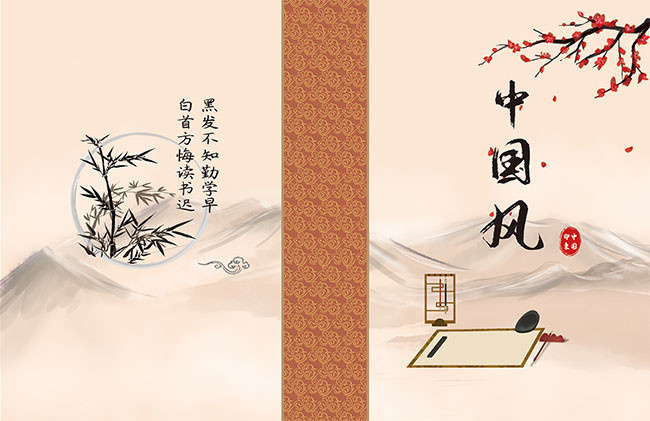 黑发不知勤学早
白首方悔读书迟
中国风
中国
印象